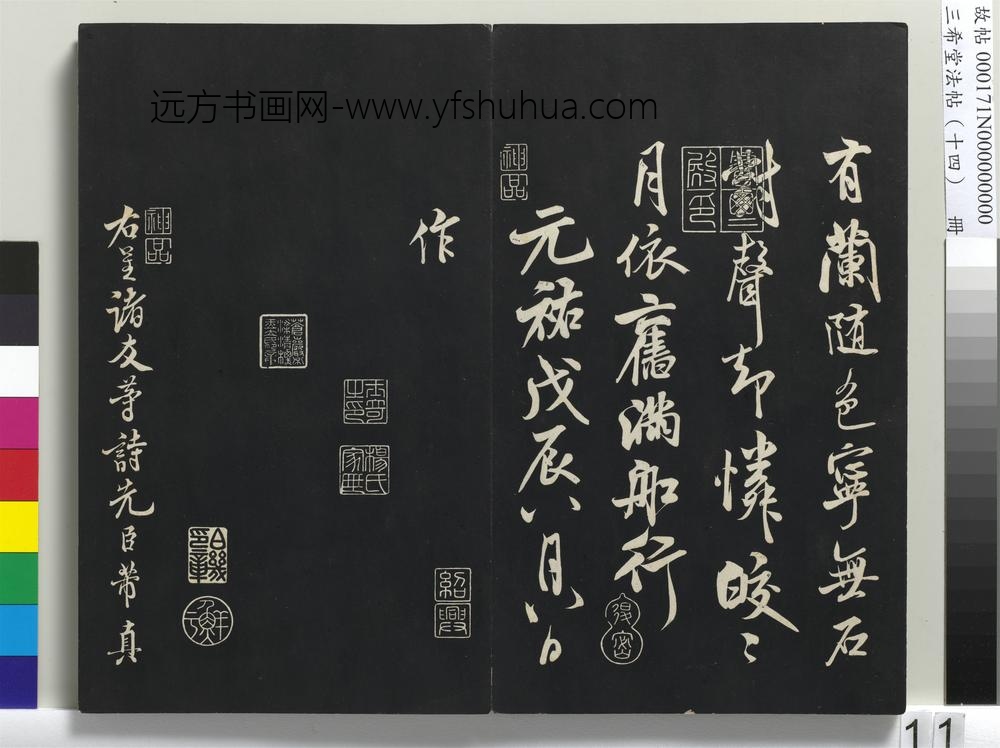 故帖 000171N000000000
三希堂法帖（十四） 册
远方书画网-www.yfshuhua.com
有蘭随色寧無石
對聲却憐皎〻
月依舊滿船行
元祐戊辰八月八日
作
右呈諸友等詩先臣芾真
神品
神品
紹興
楊氏家藏
11